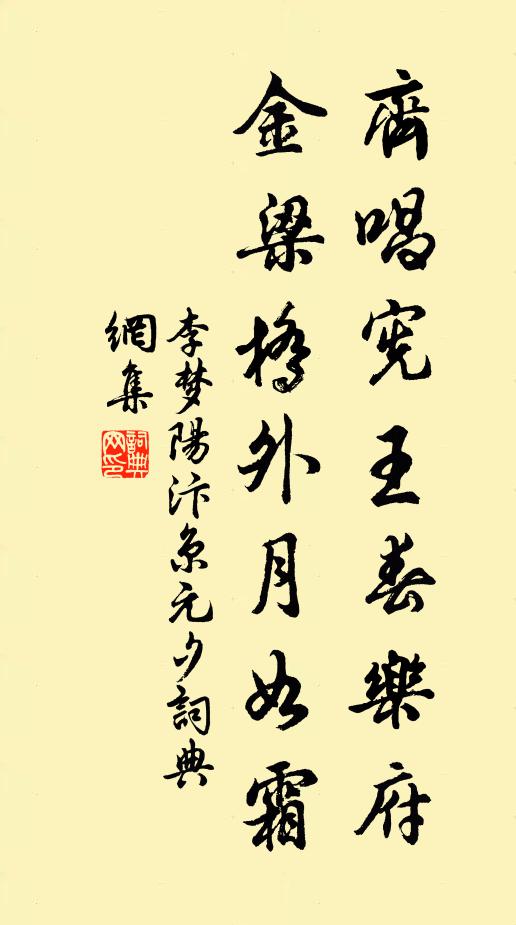 齊唱憲王春樂府
金梁橋外月如霜
李梦陽汴京元夕詞典
網集
詞典
网印